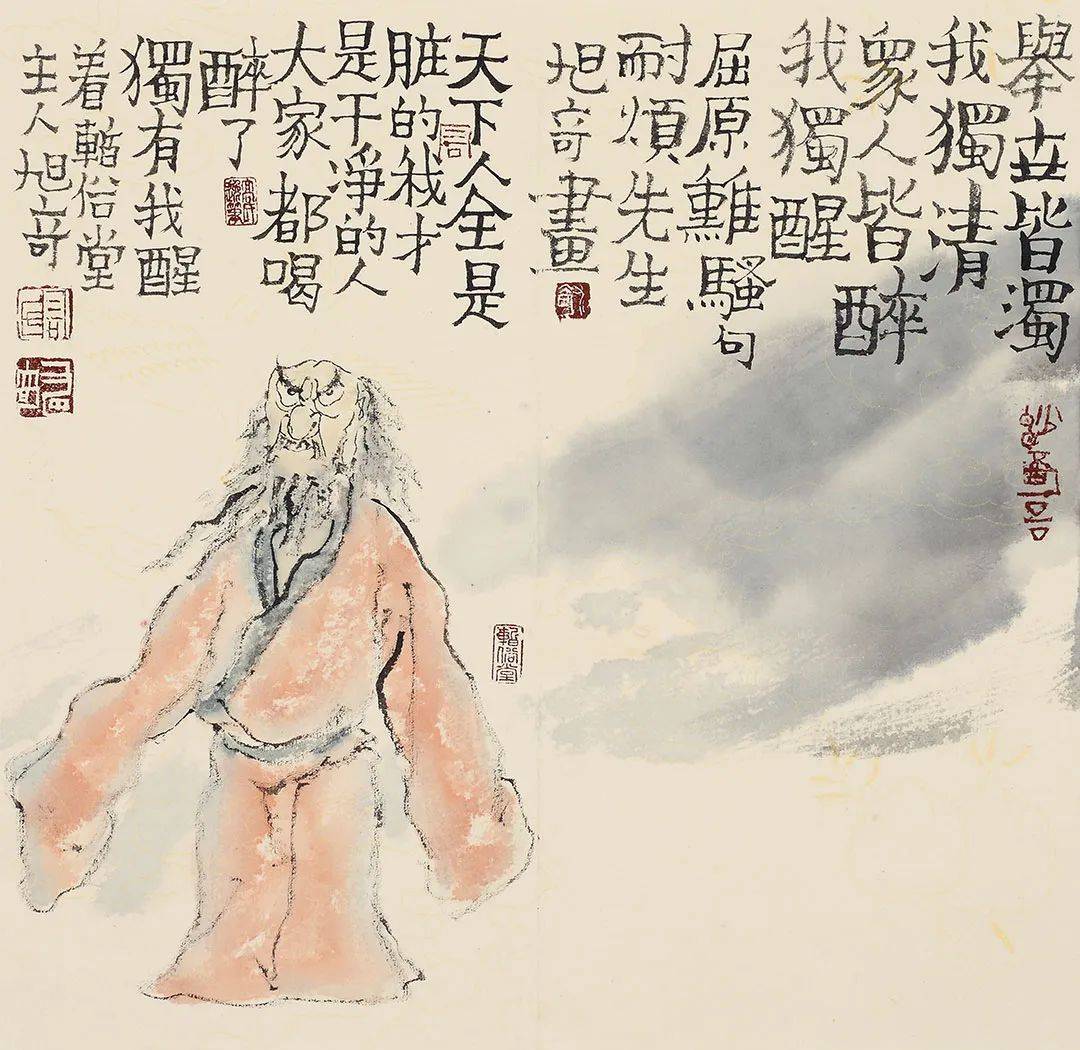 舉世皆濁
我獨清
衆人皆醉
我獨醒
屈原離騷句
耐煩先生
旭竒畫
天下人全是
脏的我才
是干淨的人
大家都喝
醉了
獨有我醒
着暫俗堂
主人旭竒
暫俗堂